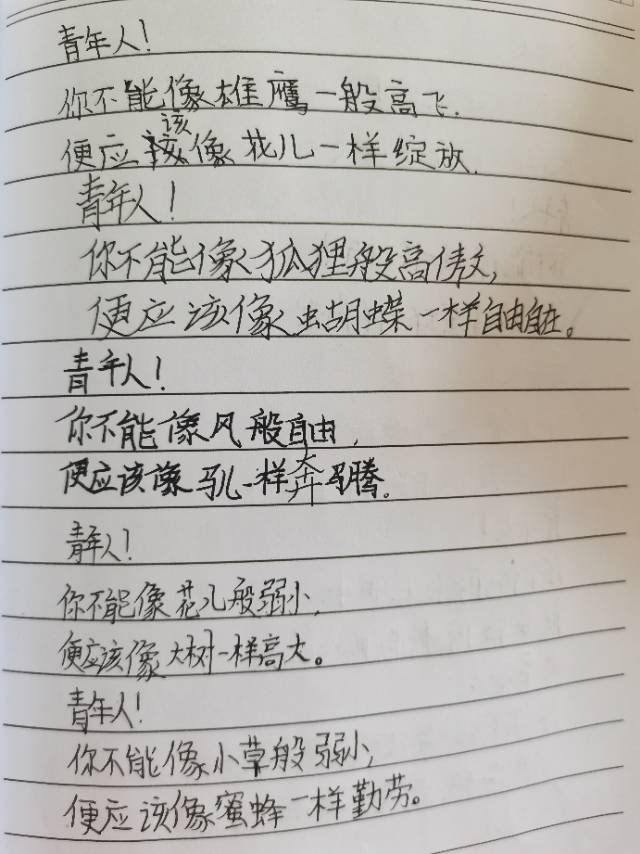 青年人!
你不能像雄鹰一般高飞.
便应该像花儿一样绽放.
青年人!
你不能像狐狸般高傲,
便应该像蝴蝶一样自由自在。
青年人!
你不能像风般自由,
便应该像马儿一样奔腾.
青年人!
你不能像花儿般弱小,
便应该像大树一样高大。
青年人!
你不能像小草般弱小,
便应该像蜜蜂一样勤劳。